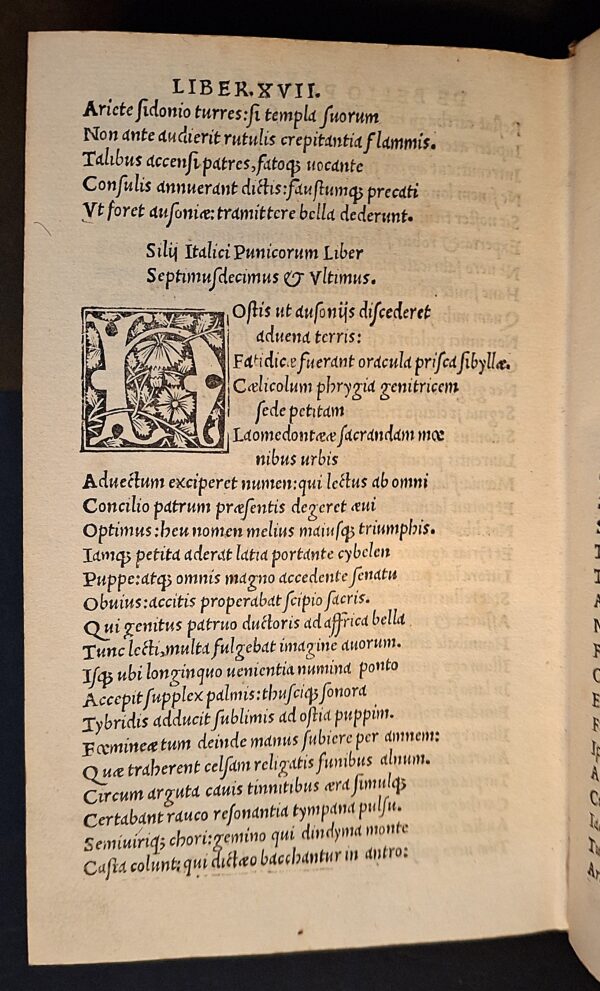 LIBER.XVII.
Ariete ſidonio turres:ſi templa ſuorum
Non ante audierit rutulis crepitantia flammis.
Talibus accenſi patres,fatoq; uocante
Conſulis annuerant dictis:fauſtumq; precati
Vt foret auſoniæ:tramittere bella dederunt.
Silij Italici Punicorum Liber
Septimuſdecimus & Vltimus.
H
Oſtis ut auſonijs diſcederet
aduena terris:
Fatidicæ fuerant oracula priſca ſibyllæ.
Cælicolum phrygia genitricem
ſede petitam
Laomedonteæ ſacrandam mœ
nibus urbis
Aduectum exciperet numen:qui lectus ab omni
Concilio patrum præſentis degeret æui
Optimus:heu nomen melius maiuſq; triumphis.
Iamq; petita aderat latia portante cybelen
Puppe:atq; omnis magno accedente ſenatu
Obuius:accitis properabat ſcipio ſacris.
Qui genitus patruo ductoris ad affrica bella
Tunc lecti,multa fulgebat imagine auorum.
Iſq; ubi longinquo uenientia numina ponto
Accepit ſupplex palmis:thuſciq; ſonora
Tybridis adducit ſublimis ad oſtia puppim.
Fœmineæ tum deinde manus ſubiere per amnem:
Quæ traherent celſam religatis funibus alnum.
Circum arguta cauis tinnitibus æra ſimulq;
Certabant rauco reſonantia tympana pulſu.
Semiuiriq; chori:gemino qui dindyma monte
Caſta colunt:qui dictæo bacchantur in antro: